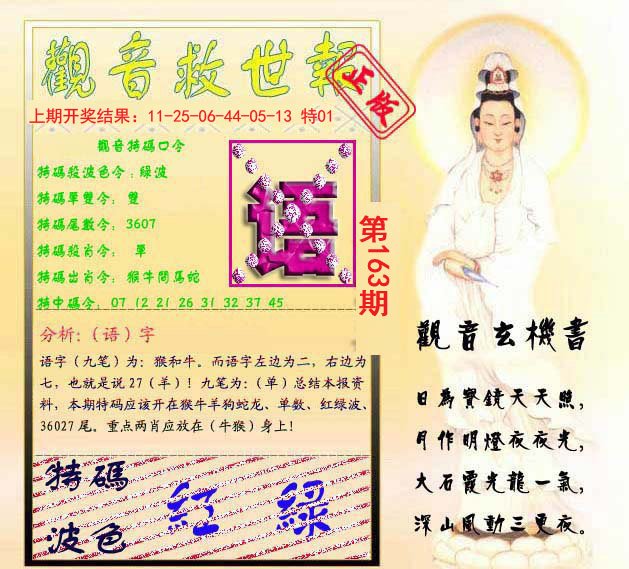 觀音救世報
正版
上期开奖结果：11-25-06-44-05-13 特01
觀音特碼口令
特碼殺波色令：綠波
特碼單雙令： 雙
特碼尾數令：3607
特碼殺肖令： 單
特碼出肖令：猴牛問馬蛇
特中碼令：07 12 21 26 31 32 37 45
语
第163期
分析:（语）字
语字（九笔）为：猴和牛。而语字左边为二，右边为
七，也就是说27（羊）！九笔为:（单）总结本报资
料，本期特码应该开在猴牛羊狗蛇龙、单数、红绿波、
36027尾。重点两肖应放在（牛猴）身上！
特碼
波色
紅 綠
觀音玄機書
日為寶鏡天天照，
月作明燈夜夜光，
大石霞光龍一氣，
深山風動三更夜。